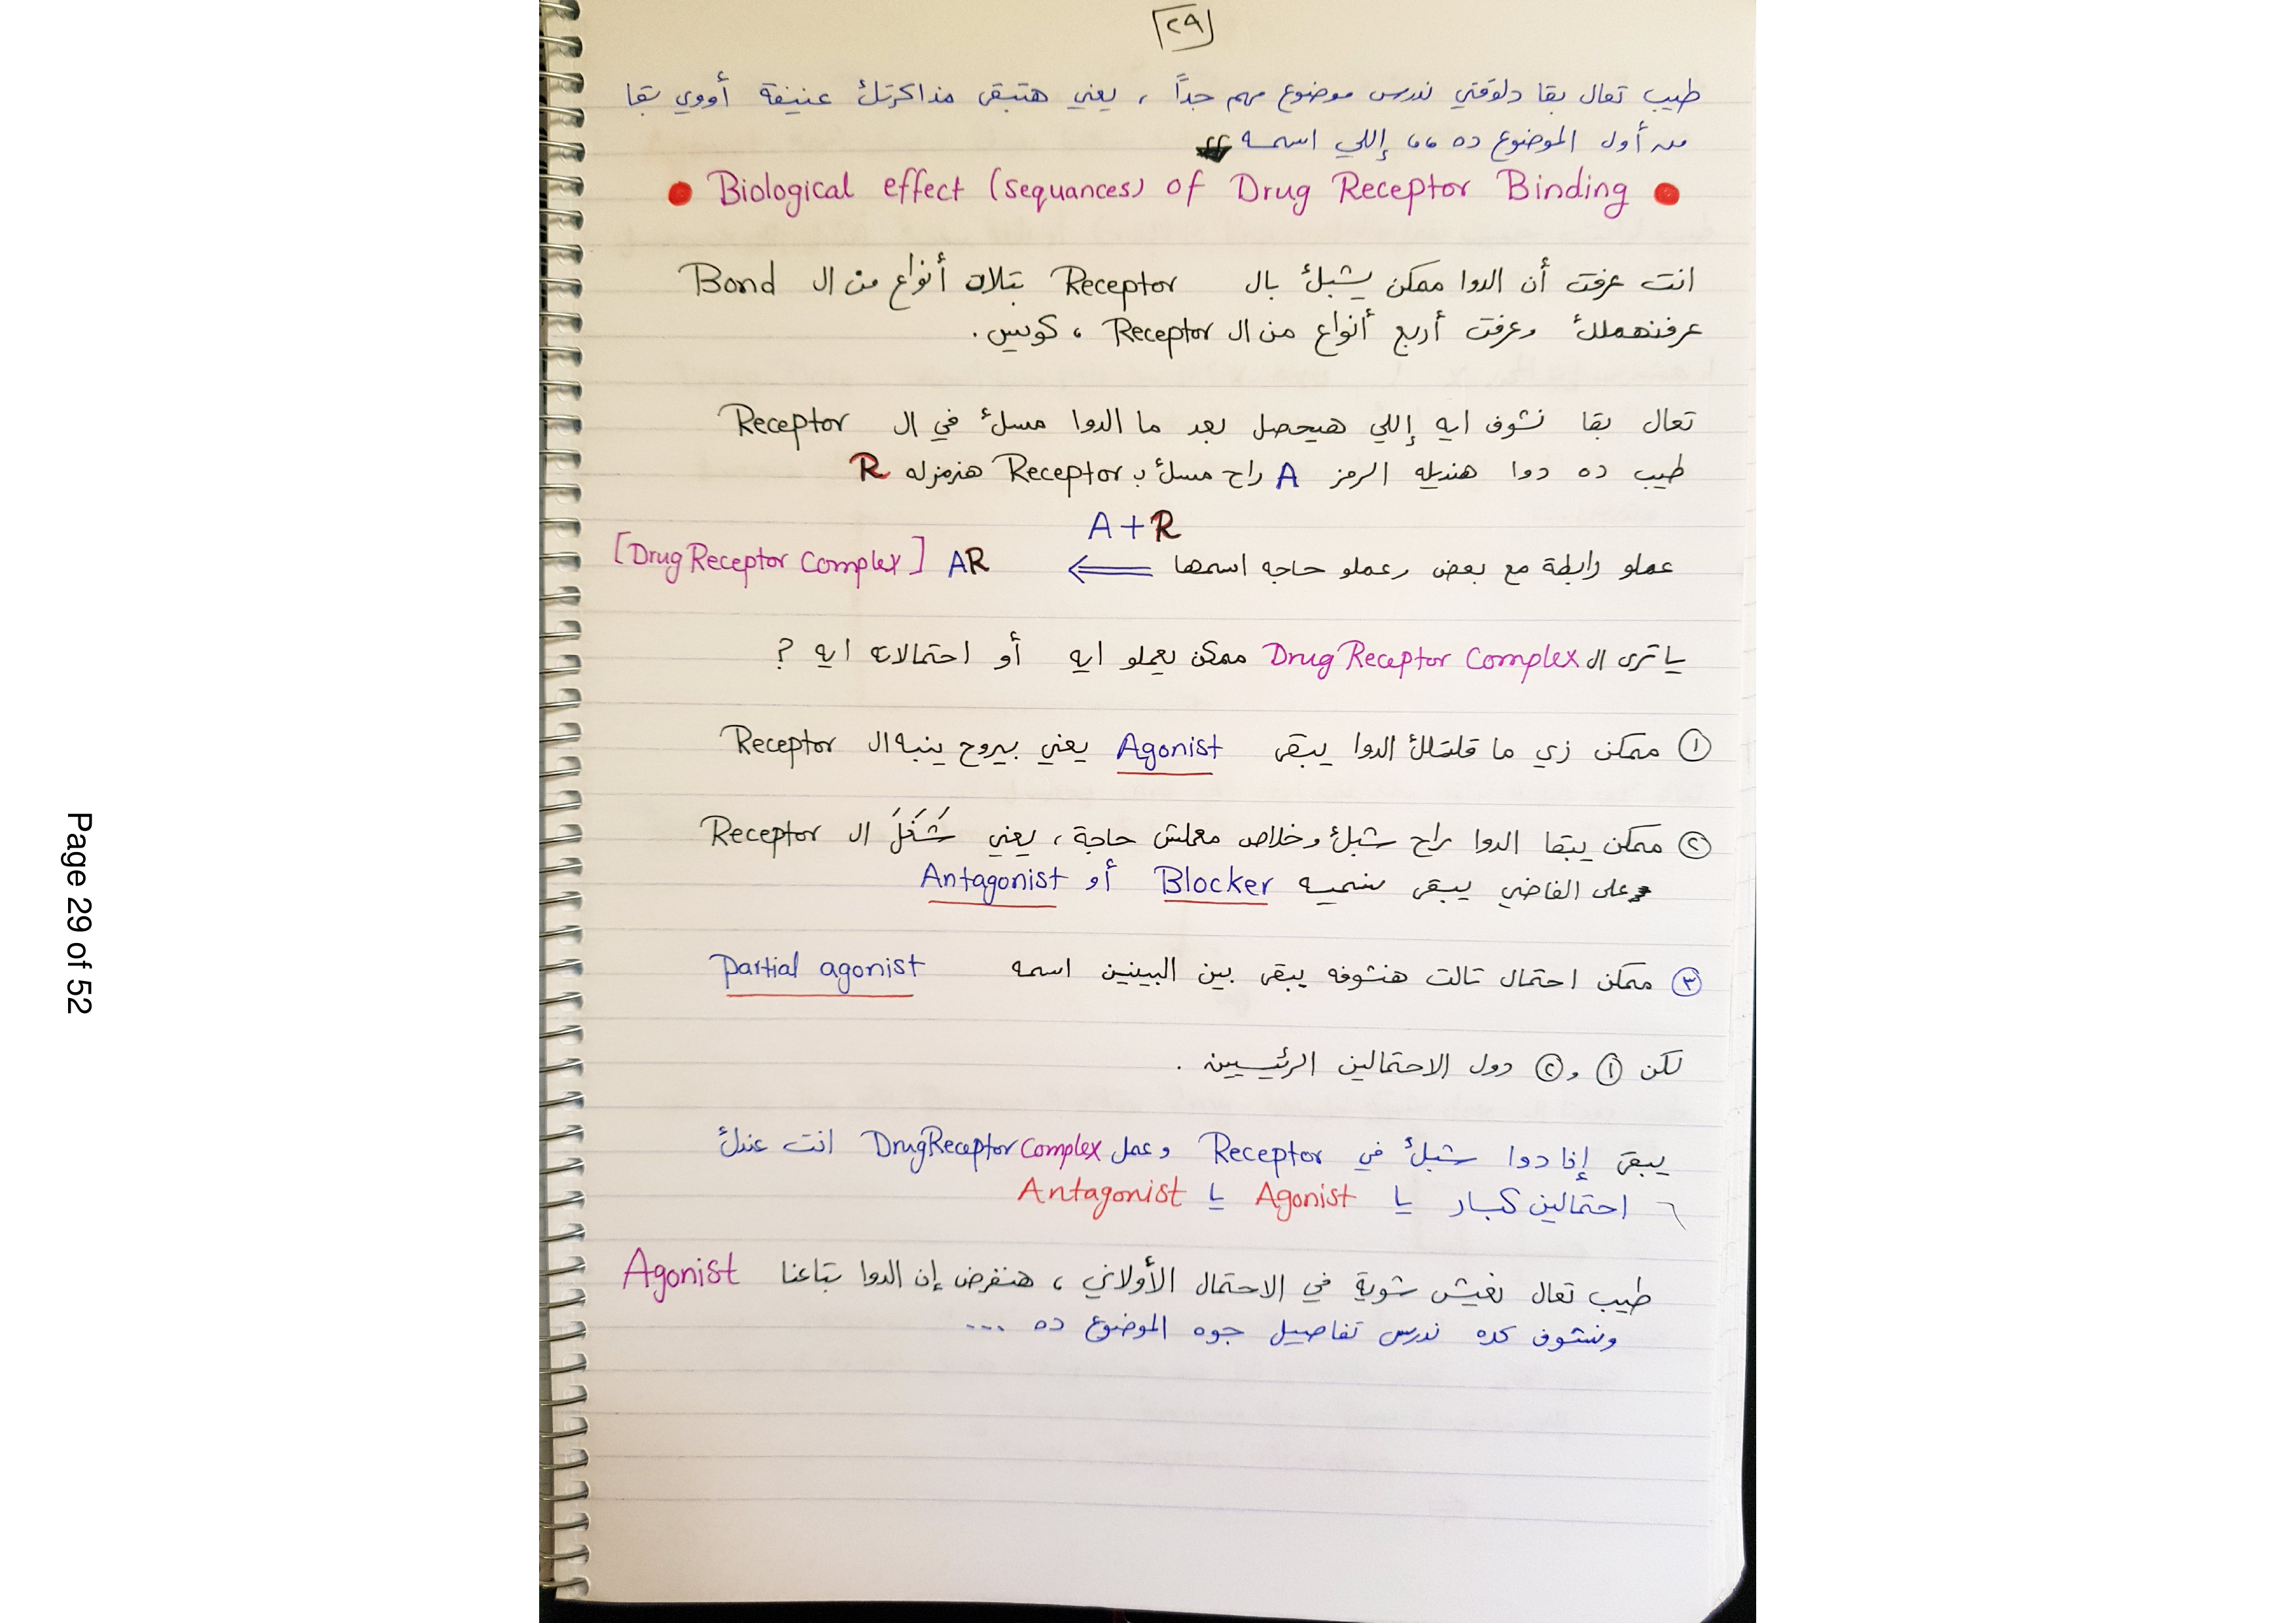 ٢٩
طيب تعال بقا دلوقتي ندرس موضوع مهم جداً ، يعني هتبقى مذاكرتك عنيفة أووي بقا
من أول الموضوع ده ،، إللي اسمه
Biological effect (sequances) of Drug Receptor Binding
انت عرفت أن الدوا ممكن يشبك بال Receptor بتلات أنواع من ال Bond
عرفنهملك وعرفت أربع أنواع من ال Receptor ، كويس .
تعال بقا نشوف ايه إللي هيحصل بعد ما الدوا مسك في ال Receptor
طيب ده دوا هنديله الرمز A راح مسك ب Receptor هنرمزله R
A + R
عملو رابطة مع بعض وعملو حاجه اسمها ⟸ AR [Drug Receptor Complex]
ياترى ال Drug Receptor Complex ممكن يعملو ايه أو احتمالاته ايه ?
① ممكن زي ما قلتلك الدوا يبقى Agonist يعني بيروح ينبه ال Receptor
② ممكن يبقا الدوا راح شبك وخلاص معملش حاجة ، يعني شَغَلَ ال Receptor
على الفاضي يبقى نسميه Blocker أو Antagonist
③ ممكن احتمال تالت هنشوفه يبقى بين البينين اسمه Partial agonist
لكن ① و ② دول الاحتمالين الرئيسيين .
يبقى إذا دوا شبك في Receptor وعمل Drug Receptor Complex انت عندك
٢ احتمالين كبار يا Agonist يا Antagonist
طيب تعال نعيش شوية في الاحتمال الأولاني ، هنفرض إن الدوا بتاعنا Agonist
ونشوف كده ندرس تفاصيل جوه الموضوع ده ...
Page 29 of 52